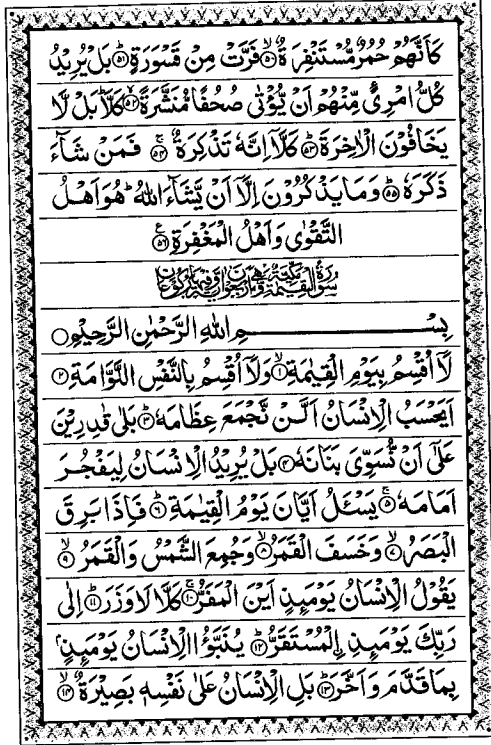 كَاَنَّهُمْ حُمُرٌ مُّسْتَنْفِرَةٌ ۙ﴿۵۰﴾ فَرَّتْ مِنْ قَسْوَرَةٍ ؕ﴿۵۱﴾ بَلْ يُرِيْدُ
كُلُّ امْرِئٍ مِّنْهُمْ اَنْ يُّؤْتٰى صُحُفًا مُّنَشَّرَةً ۙ﴿۵۲﴾ كَلَّا ؕ بَلْ لَّا
يَخَافُوْنَ الْاٰخِرَةَ ؕ﴿۵۳﴾ كَلَّاۤ اِنَّهٗ تَذْكِرَةٌ ۚ﴿۵۴﴾ فَمَنْ شَآءَ
ذَكَرَهٗ ؕ﴿۵۵﴾ وَمَا يَذْكُرُوْنَ اِلَّاۤ اَنْ يَّشَآءَ اللّٰهُ ؕ هُوَ اَهْلُ
التَّقْوٰى وَاَهْلُ الْمَغْفِرَةِ ﴿۵۶﴾ ع
سُوْرَةُ الْقِيٰمَةِ مَكِّيَّةٌ وَّهِىَ اَرْبَعُوْنَ اٰيَةً وَّفِيْهَا رُكُوْعَانِ
بِسْمِ اللّٰهِ الرَّحْمٰنِ الرَّحِيْمِ ○
لَاۤ اُقْسِمُ بِيَوْمِ الْقِيٰمَةِ ۙ﴿۱﴾ وَلَاۤ اُقْسِمُ بِالنَّفْسِ اللَّوَّامَةِ ؕ﴿۲﴾
اَيَحْسَبُ الْاِنْسَانُ اَلَّنْ نَّجْمَعَ عِظَامَهٗ ؕ﴿۳﴾ بَلٰى قٰدِرِيْنَ
عَلٰۤى اَنْ نُّسَوِّىَ بَنَانَهٗ ﴿۴﴾ بَلْ يُرِيْدُ الْاِنْسَانُ لِيَفْجُرَ
اَمَامَهٗ ۚ﴿۵﴾ يَسْئَلُ اَيَّانَ يَوْمُ الْقِيٰمَةِ ؕ﴿۶﴾ فَاِذَا بَرِقَ
الْبَصَرُ ۙ﴿۷﴾ وَخَسَفَ الْقَمَرُ ۙ﴿۸﴾ وَجُمِعَ الشَّمْسُ وَالْقَمَرُ ۙ﴿۹﴾
يَقُوْلُ الْاِنْسَانُ يَوْمَئِذٍ اَيْنَ الْمَفَرُّ ۚ﴿۱۰﴾ كَلَّا لَا وَزَرَ ؕ﴿۱۱﴾ اِلٰى
رَبِّكَ يَوْمَئِذِ ࣙالْمُسْتَقَرُّ ؕ﴿۱۲﴾ يُنَبَّؤُا الْاِنْسَانُ يَوْمَئِذٍۭ
بِمَا قَدَّمَ وَاَخَّرَ ؕ﴿۱۳﴾ بَلِ الْاِنْسَانُ عَلٰى نَفْسِهٖ بَصِيْرَةٌ ۙ﴿۱۴﴾